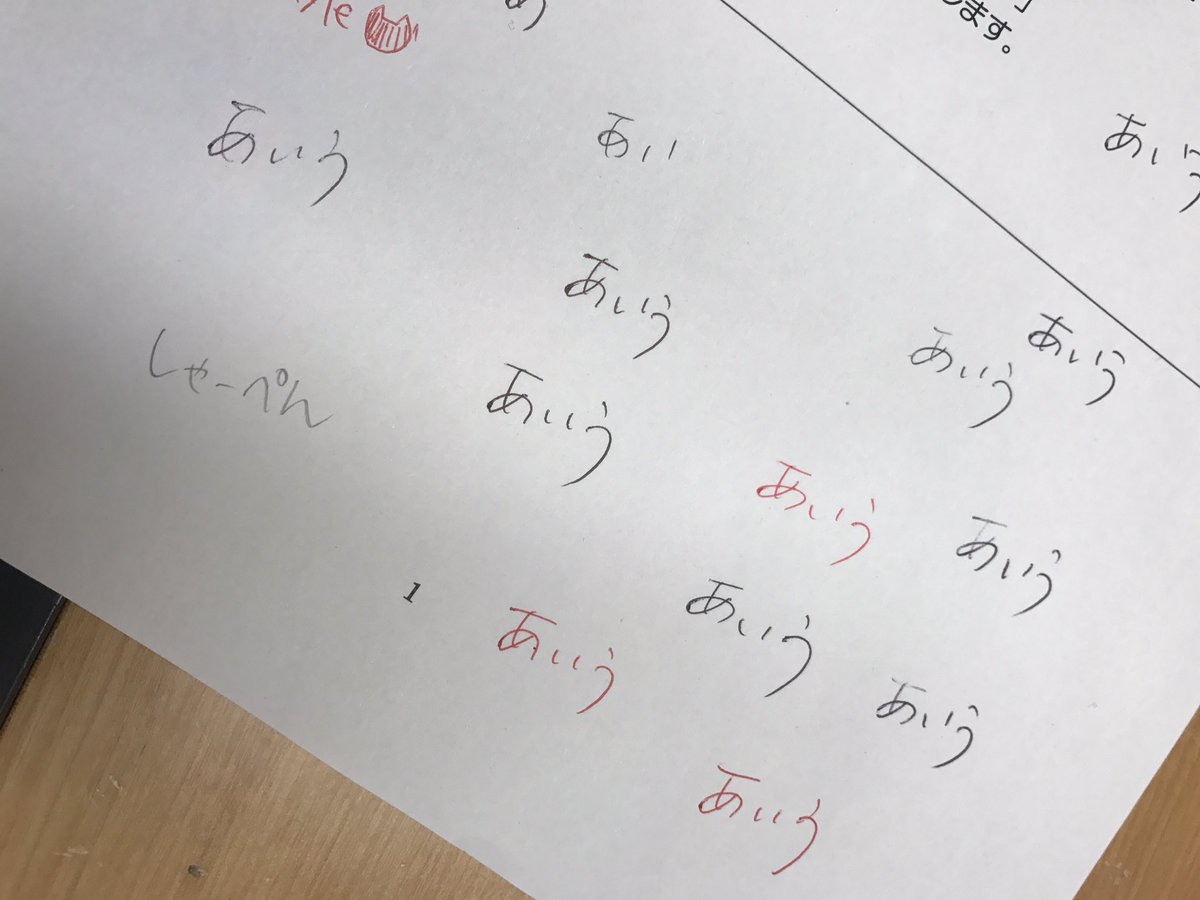 め
」
します。
あいう
あいう
あい
あいう
あいう
あいう
しゃーぺん
あいう
あいう
あいう
1
あいう
あいう
あいう
あいう